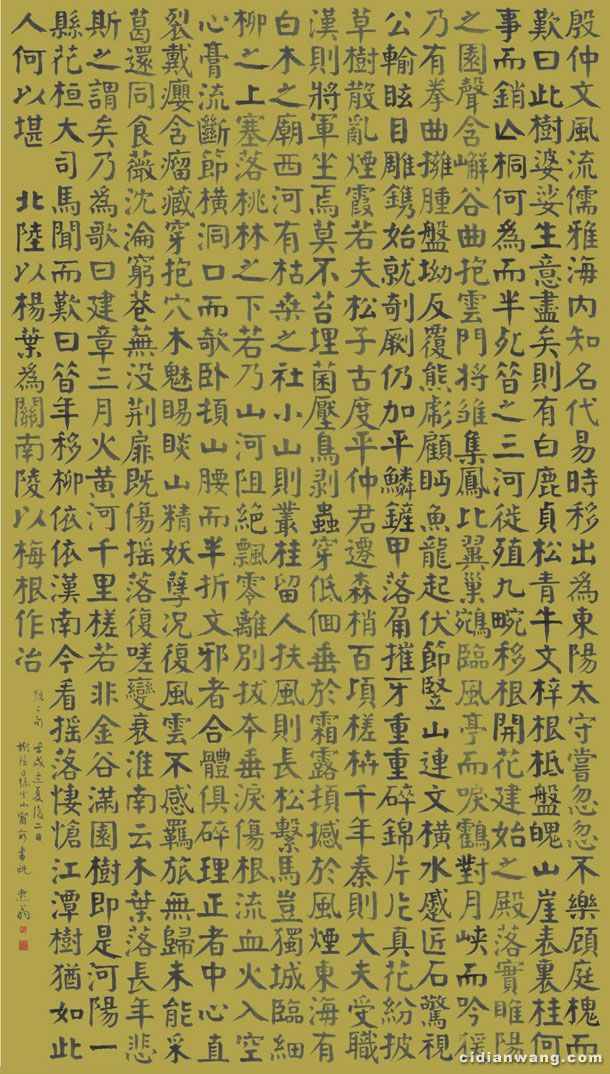 殷仲文風流儒雅海内知名代易時移出為東陽太守嘗忽忽不樂顧庭槐而
歎曰此樹婆娑生意盡矣則有白鹿貞松青牛文梓根柢盤魄山崖表裏桂何
事而銷亡桐何為而半死昝之三河徙殖九畹移根開花建始之殿落實睢陽
之園聲含嶰谷曲抱雲門將雛集鳳比翼巢鵷臨風亭而唳鶴對月峽而吟猨
乃有拳曲擁腫盤坳反覆熊彪顧盻魚龍起伏節豎山連文橫水蹙匠石驚視
公輸眩目雕鎸始就剞劂仍加平鱗鏟甲落角摧牙重重碎錦片片真花紛披
草樹散亂煙霞若夫松子古度平仲君遷森梢百頃槎枿千年秦則大夫受職
漢則將軍坐焉莫不苔埋菌壓鳥剥蟲穿低佪垂於霜露頓撼於風煙東海有
白木之廟西河有枯桑之社小山則叢桂留人扶風則長松繫馬豈獨城臨細
柳之上塞落桃林之下若乃山河阻絶飄零離別拔本垂淚傷根流血火入空
心膏流斷節橫洞口而欹卧頓山腰而半折文邪者合體俱碎理正者中心直
裂戴癭含瘤藏穿抱穴木魅睗睒山精妖孽況復風雲不感羈旅無歸未能采
葛還同食薇沈淪窮巷蕪没荆扉既傷搖落復嗟變衰淮南云木葉落長年悲
斯之謂矣乃為歌曰建章三月火黃河千里槎若非金谷滿園樹即是河陽一
縣花桓大司馬聞而歎曰昝年移柳依依漢南今看搖落悽愴江潭樹猶如此
人何以堪 北陸以楊葉為關南陵以梅根作冶
脱二句 壬戌立夏後二日
書此
cidianwang.com